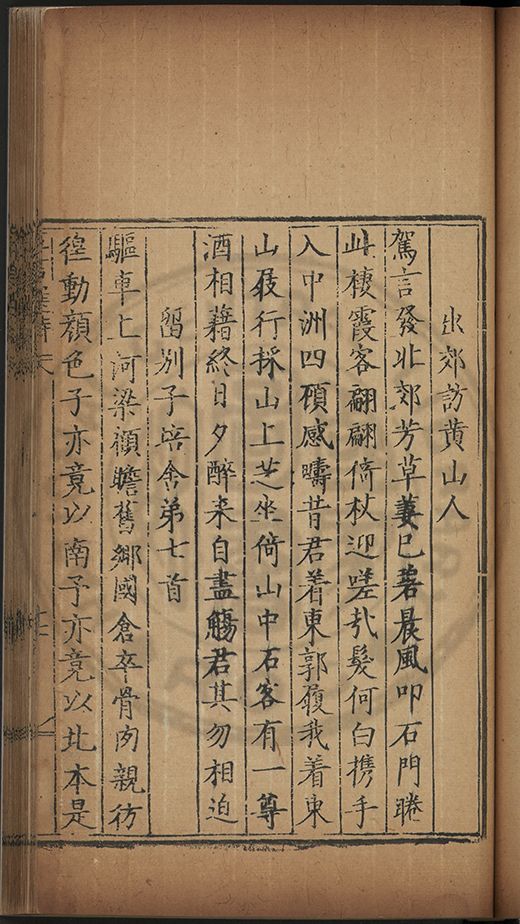 出郊訪黃山人
駕言發北郊芳草萋已碧晨風叩石門睠
此棲霞客翩翩倚杖迎嗟哉髮何白携手
入中洲四顧感疇昔君着東郭履我着東
山屐行採山上芝坐倚山中石客有一尊
酒相藉終日夕醉来自盡觴君其勿相迫
留別子培舍弟七首
驅車上河梁顧瞻舊鄉國倉卒骨肉親彷
徨動顔色子亦竟以南予亦竟以北本是